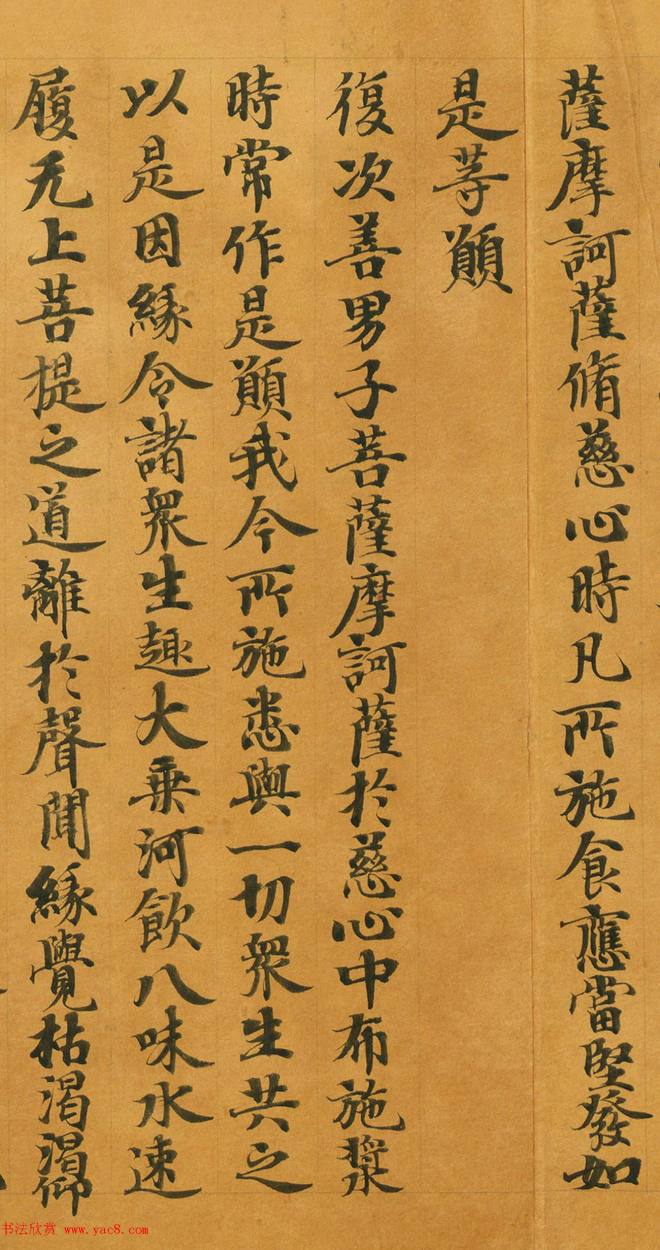 薩摩訶薩脩慈心時凡所施食應當堅發如
是等願
復次善男子菩薩摩訶薩於慈心中布施漿
時常作是願我今所施悉與一切眾生共之
以是因緣令諸眾生趣大乘河飲八味水速
履无上菩提之道離於聲聞緣覺枯渴渴仰
书法欣赏 www.yac8.com